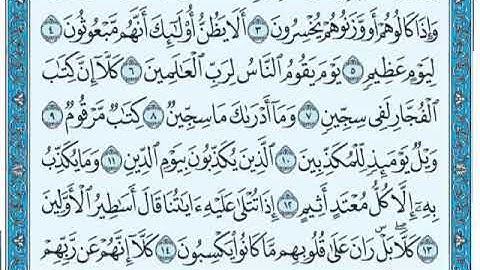 وَإِذَا كَالُوهُمْ أَو وَّزَنُوهُمْ يُخْسِرُونَ ٣ أَلَا يَظُنُّ أُوْلَٰٓئِكَ أَنَّهُم مَّبْعُوثُونَ ٤
لِيَوْمٍ عَظِيمٍ ٥ يَوْمَ يَقُومُ ٱلنَّاسُ لِرَبِّ ٱلْعَٰلَمِينَ ٦ كَلَّآ إِنَّ كِتَٰبَ
ٱلْفُجَّارِ لَفِى سِجِّينٍ ٧ وَمَآ أَدْرَىٰكَ مَا سِجِّينٌ ٨ كِتَٰبٌ مَّرْقُومٌ ٩
وَيْلٌ يَوْمَئِذٍ لِّلْمُكَذِّبِينَ ١٠ ٱلَّذِينَ يُكَذِّبُونَ بِيَوْمِ ٱلدِّينِ ١١ وَمَا يُكَذِّبُ
بِهِۦٓ إِلَّا كُلُّ مُعْتَدٍ أَثِيمٍ ١٢ إِذَا تُتْلَىٰ عَلَيْهِ ءَايَٰتُنَا قَالَ أَسَٰطِيرُ ٱلْأَوَّلِينَ
١٣ كَلَّا ۖ بَلْ ۜ رَانَ عَلَىٰ قُلُوبِهِم مَّا كَانُوا۟ يَكْسِبُونَ ١٤ كَلَّآ إِنَّهُمْ عَن رَّبِّهِمْ